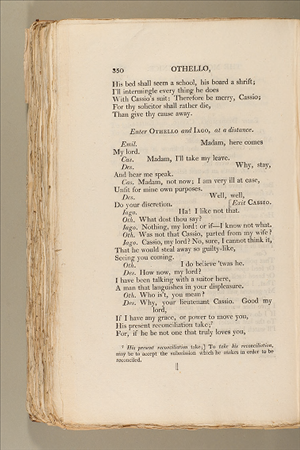 350 OTHELLO,
His bed shall seem a school, his board a shrift;
I'll intermingle every thing he does
With Cassio's suit: Therefore be merry, Cassio;
For thy solicitor shall rather die,
Than give thy cause away.
Enter OTHELLO and IAGO, at a distance.
Emil. Madam, here comes
My lord.
Cas. Madam, I'll take my leave.
Des. Why, stay,
And hear me speak.
Cas. Madam, not now; I am very ill at ease,
Unfit for mine own purposes.
Des. Well, well,
Do your discretion. [Exit CASSIO.
Iago. Ha! I like not that.
Oth. What dost thou say?
Iago. Nothing, my lord: or if—I know not what.
Oth. Was not that Cassio, parted from my wife?
Iago. Cassio, my lord? No, sure, I cannot think it,
That he would steal away so guilty-like,
Seeing you coming.
Oth. I do believe 'twas he.
Des. How now, my lord?
I have been talking with a suitor here,
A man that languishes in your displeasure.
Oth. Who is't, you mean?
Des. Why, your lieutenant Cassio. Good my
lord,
If I have any grace, or power to move you,
His present reconciliation take;⁷
For, if he be not one that truly loves you,
⁷ His present reconciliation take;] To take his reconciliation,
may be to accept the submission which he makes in order to be
reconciled.